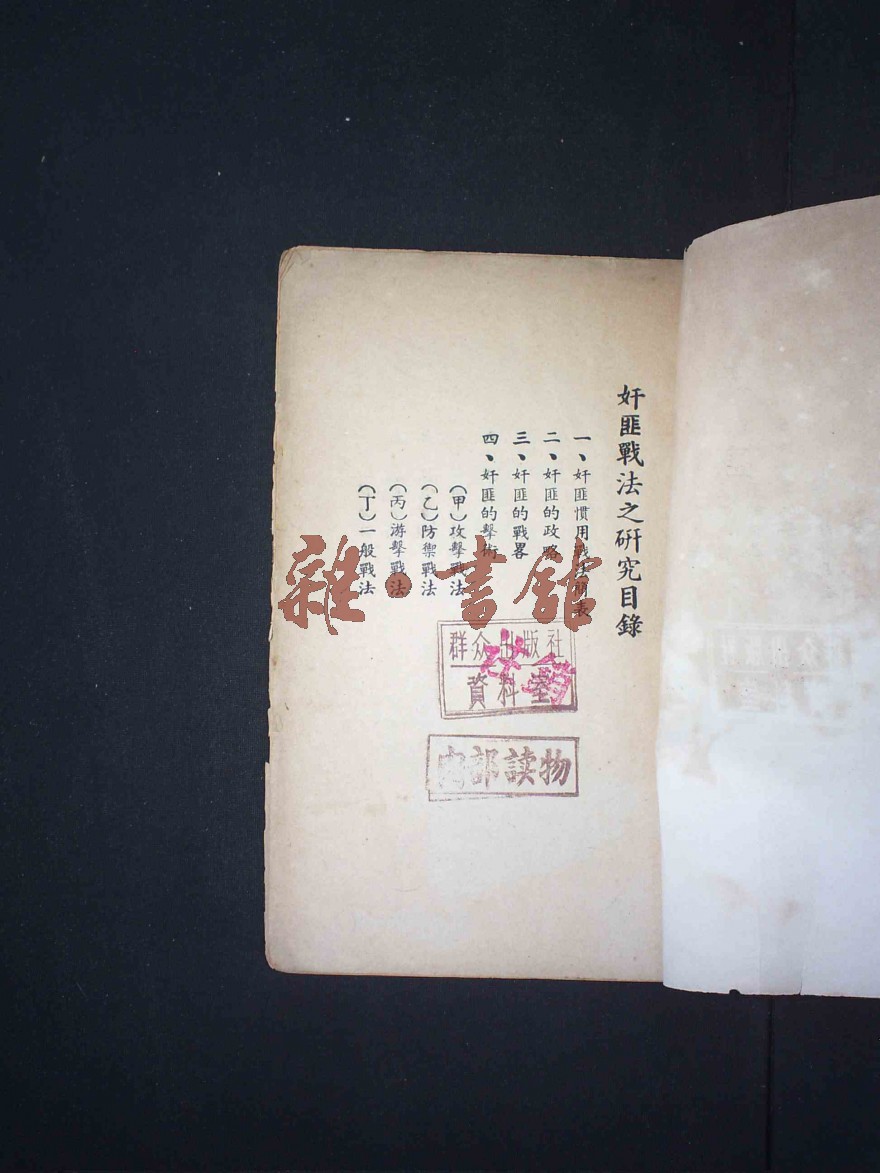 奸匪戰法之硏究目錄
一、奸匪慣用戰法簡表
二、奸匪的政略
三、奸匪的戰畧
四、奸匪的擊術
(甲)攻擊戰法
(乙)防禦戰法
(丙)游擊戰法
(丁)一般戰法
雜·書館
群众出版社
資料室
内部读物